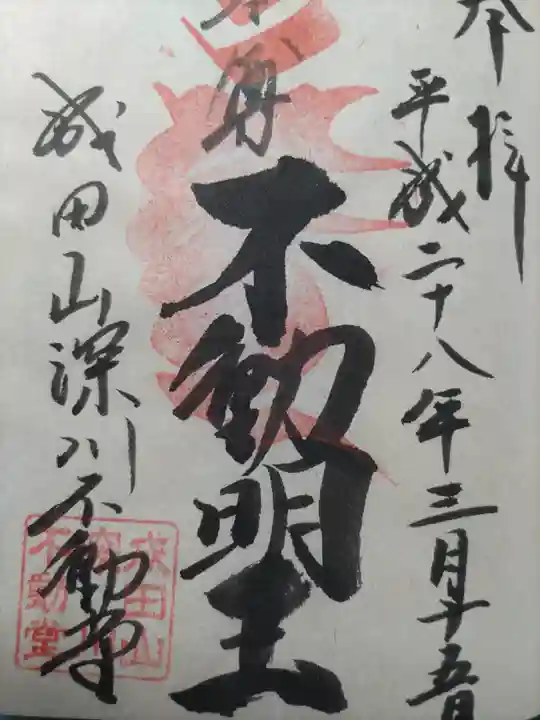 奉拝
平成二十八年三月十五日
本尊
不動明王
成田山深川不動寺
成田山
深川
不動堂